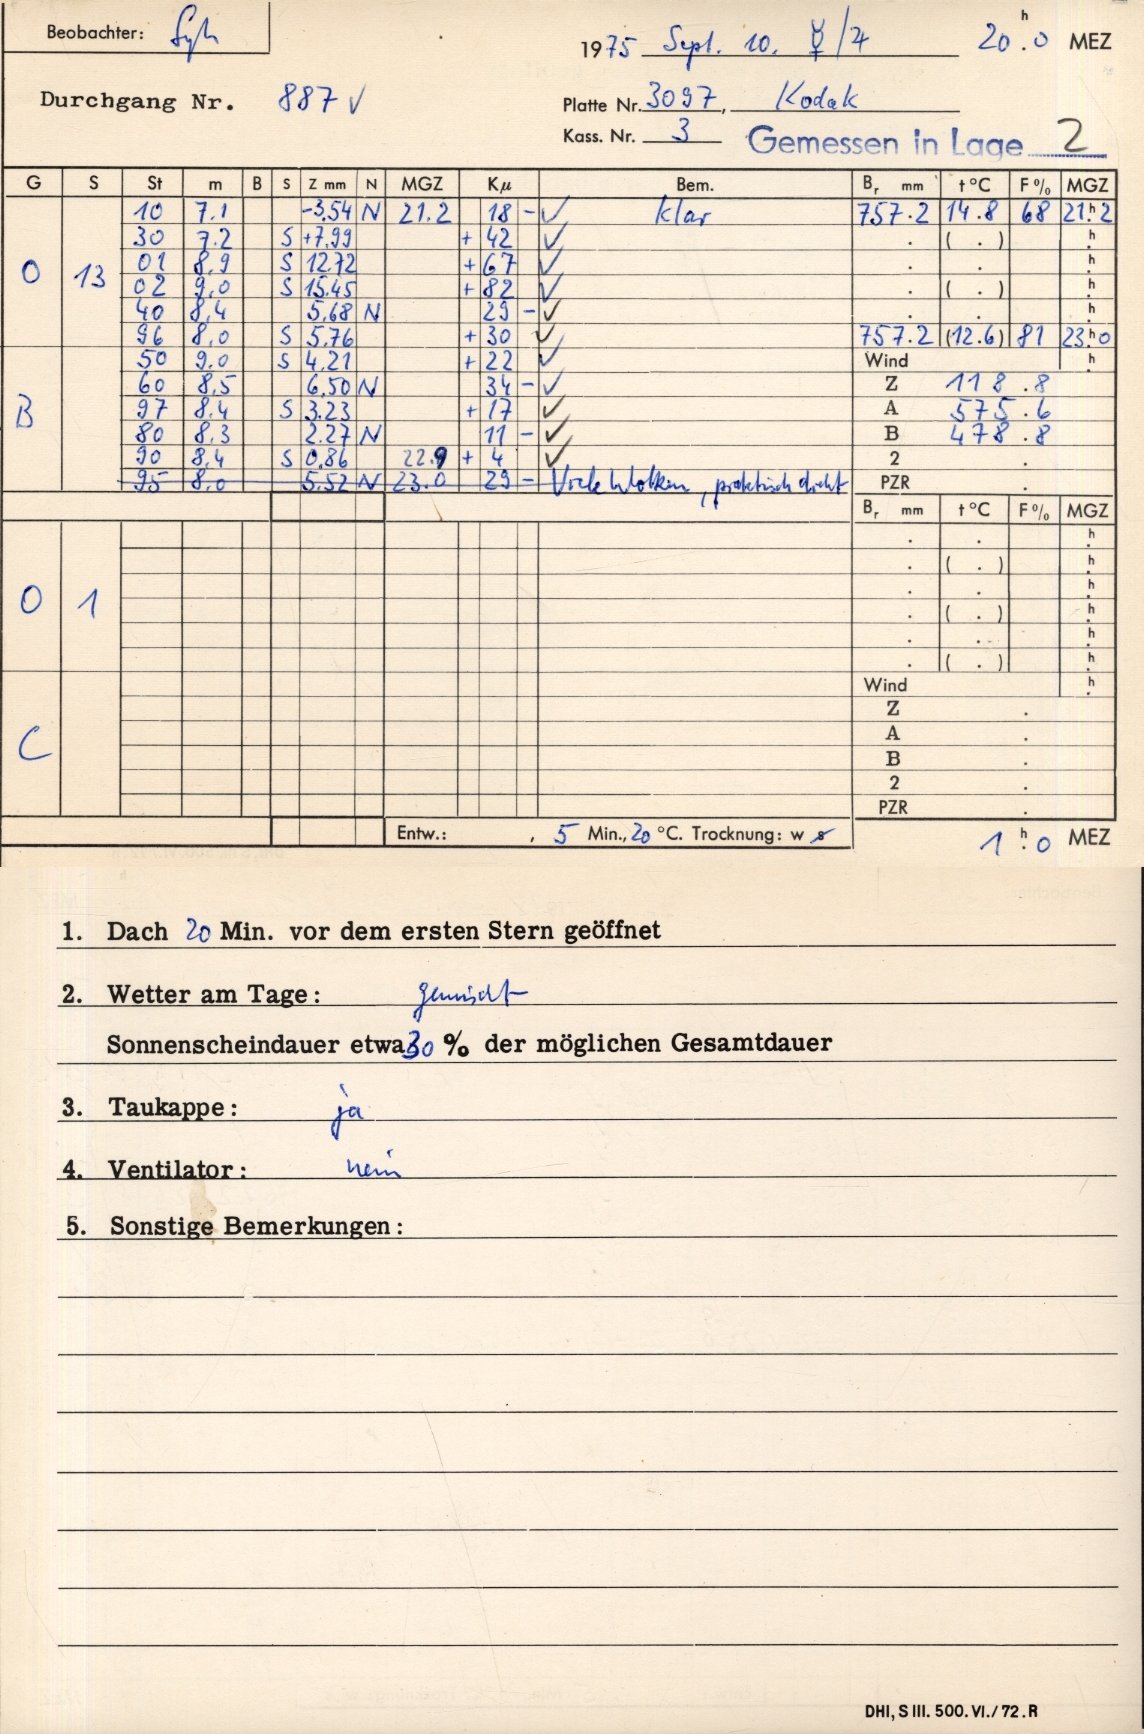 Beobachter:
1975 Sept. 10. ☿/♃ 20.ʰ0 MEZ
Durchgang Nr. 887 ✓
Platte Nr. 3097, Kodak
Kass. Nr. 3 Gemessen in Lage 2
G S St m B S Z mm N MGZ Kµ Bem. Bᵣ mm t °C F % MGZ
O 13 10 7.1 -3.54 N 21.2 18 - ✓ klar 757.2 14.8 68 21ʰ.2
30 7.2 S +7.99 + 42 ✓ . ( . ) ʰ.
01 8.9 S 12.72 + 67 ✓ . . ʰ.
02 9.0 S 15.45 + 82 ✓ . ( . ) ʰ.
40 8.4 5.68 N 29 - ✓ . . ʰ.
96 8.0 S 5.76 + 30 ✓ 757.2 (12.6) 81 23.ʰ0
B 50 9.0 S 4.21 + 22 ✓ Wind ʰ.
60 8.5 6.50 N 34 - ✓ Z 118.8
97 8.4 S 3.23 + 17 ✓ A 575.6
80 8.3 2.27 N 11 - ✓ B 478.8
90 8.4 S 0.86 22.9 + 4 ✓ 2 .
95 8.0 5.52 N 23.0 29 - Viele Wolken, praktisch dicht PZR .
Bᵣ mm t °C F % MGZ
. . ʰ.
. ( . ) ʰ.
O 1 . . ʰ.
. ( . ) ʰ.
. . ʰ.
. ( . ) ʰ.
C Wind ʰ.
Z .
A .
B .
2 .
PZR .
Entw.: , 5 Min., 20 °C. Trocknung: w s
1 ʰ. 0 MEZ
1. Dach 20 Min. vor dem ersten Stern geöffnet
2. Wetter am Tage: gemischt
Sonnenscheindauer etwa 30 % der möglichen Gesamtdauer
3. Taukappe: ja
4. Ventilator: nein
5. Sonstige Bemerkungen:
DHI, S III. 500. VI./72. R